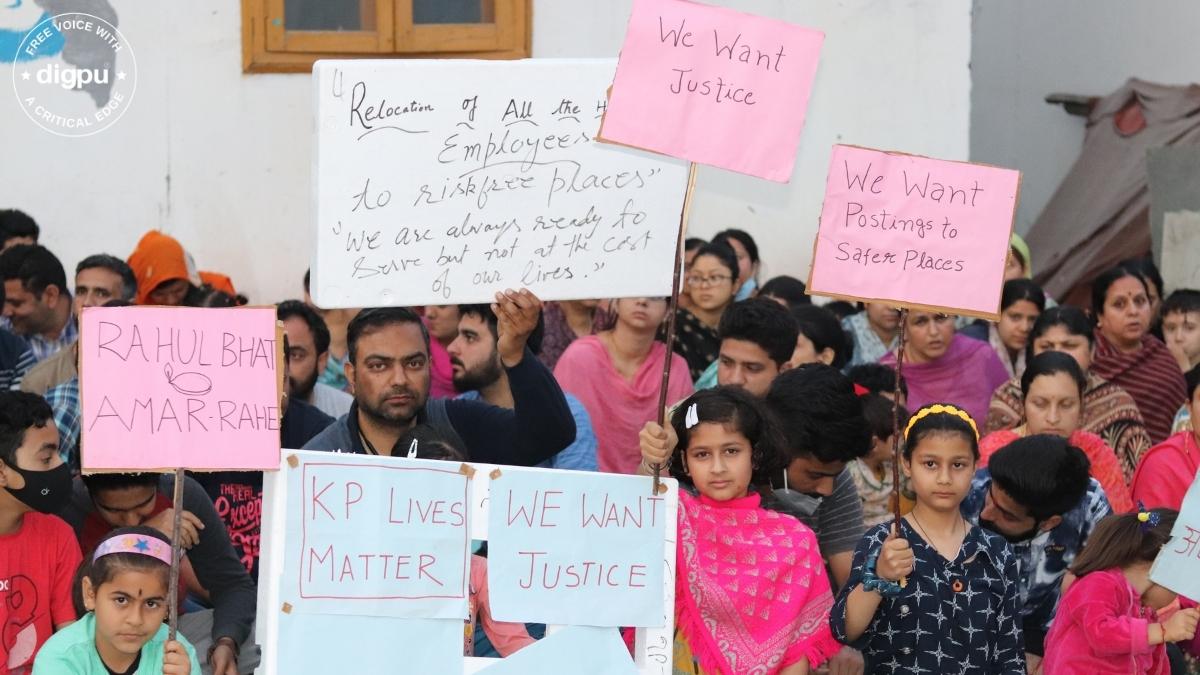 FREE VOICE WITH
digpu
A CRITICAL EDGE
Relocation of All the
Employees
to riskfree places"
"We are always ready to
serve but not at the cost
of our lives."
We Want
Justice
We Want
Postings to
Safer Places
RAHUL BHAT
AMAR-RAHE
KP LIVES
MATTER
WE WANT
JUSTICE
THE REAL
Except